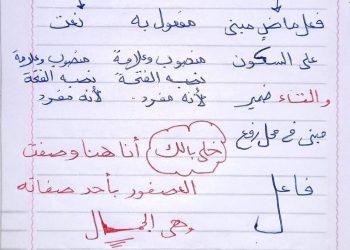 فعل ماضٍ مبنى مفعول به نعت
على السكون منصوب وعلامة منصوب وعلامة
والتاء ضمير نصبه الفتحة نصبه الفتحة
لأنه مفرد لأنه مفرد
مبنى في محل رفع
فاعل خلى بالك أنا هنا وصفت
العصفور بأحد صفاته
وهى الجمال